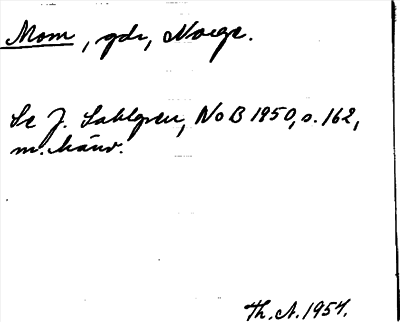 Mom, gdr, Norge.
Se J. Sahlgren, NoB 1950, s. 162,
m. hänv.
Th. A. 1957.